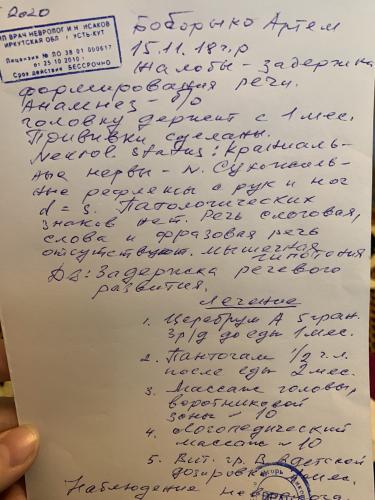 2020
ИП ВРАЧ НЕВРОЛОГ И Н ИСАКОВ
ИРКУТСКАЯ ОБЛ г УСТЬ-КУТ
Лицензия № ЛО 38 01 000617
от 25.10.2010 г
Срок действия БЕССРОЧНО
Боборыко Артем
15.11.18 г.р
Жалобы - задержка
формирования речи.
Анамнез - б/о
головку держит с 1 мес.
Прививки сделаны.
Nevrol. Status: Краниаль-
ные нервы - N. Сухожиль-
ные рефлексы с рук и ног
d = s. Патологических
знаков нет. Речь слоговая,
слова и фразовая речь
отсутствуют. мышечная
гипотония
Ds: Задержка речевого
развития.
Лечение
1. Церебрум А 5 гран.
3 р/д до еды 1 мес.
2. Пантогам 1/2 ч.л.
после еды 2 мес.
3. Массаж головы,
воротниковой
зоны ~ 10
4. Логопедический
массаж ~ 10
5. Вит. гр. В в детской
дозировке мес.
Наблюдение невролога